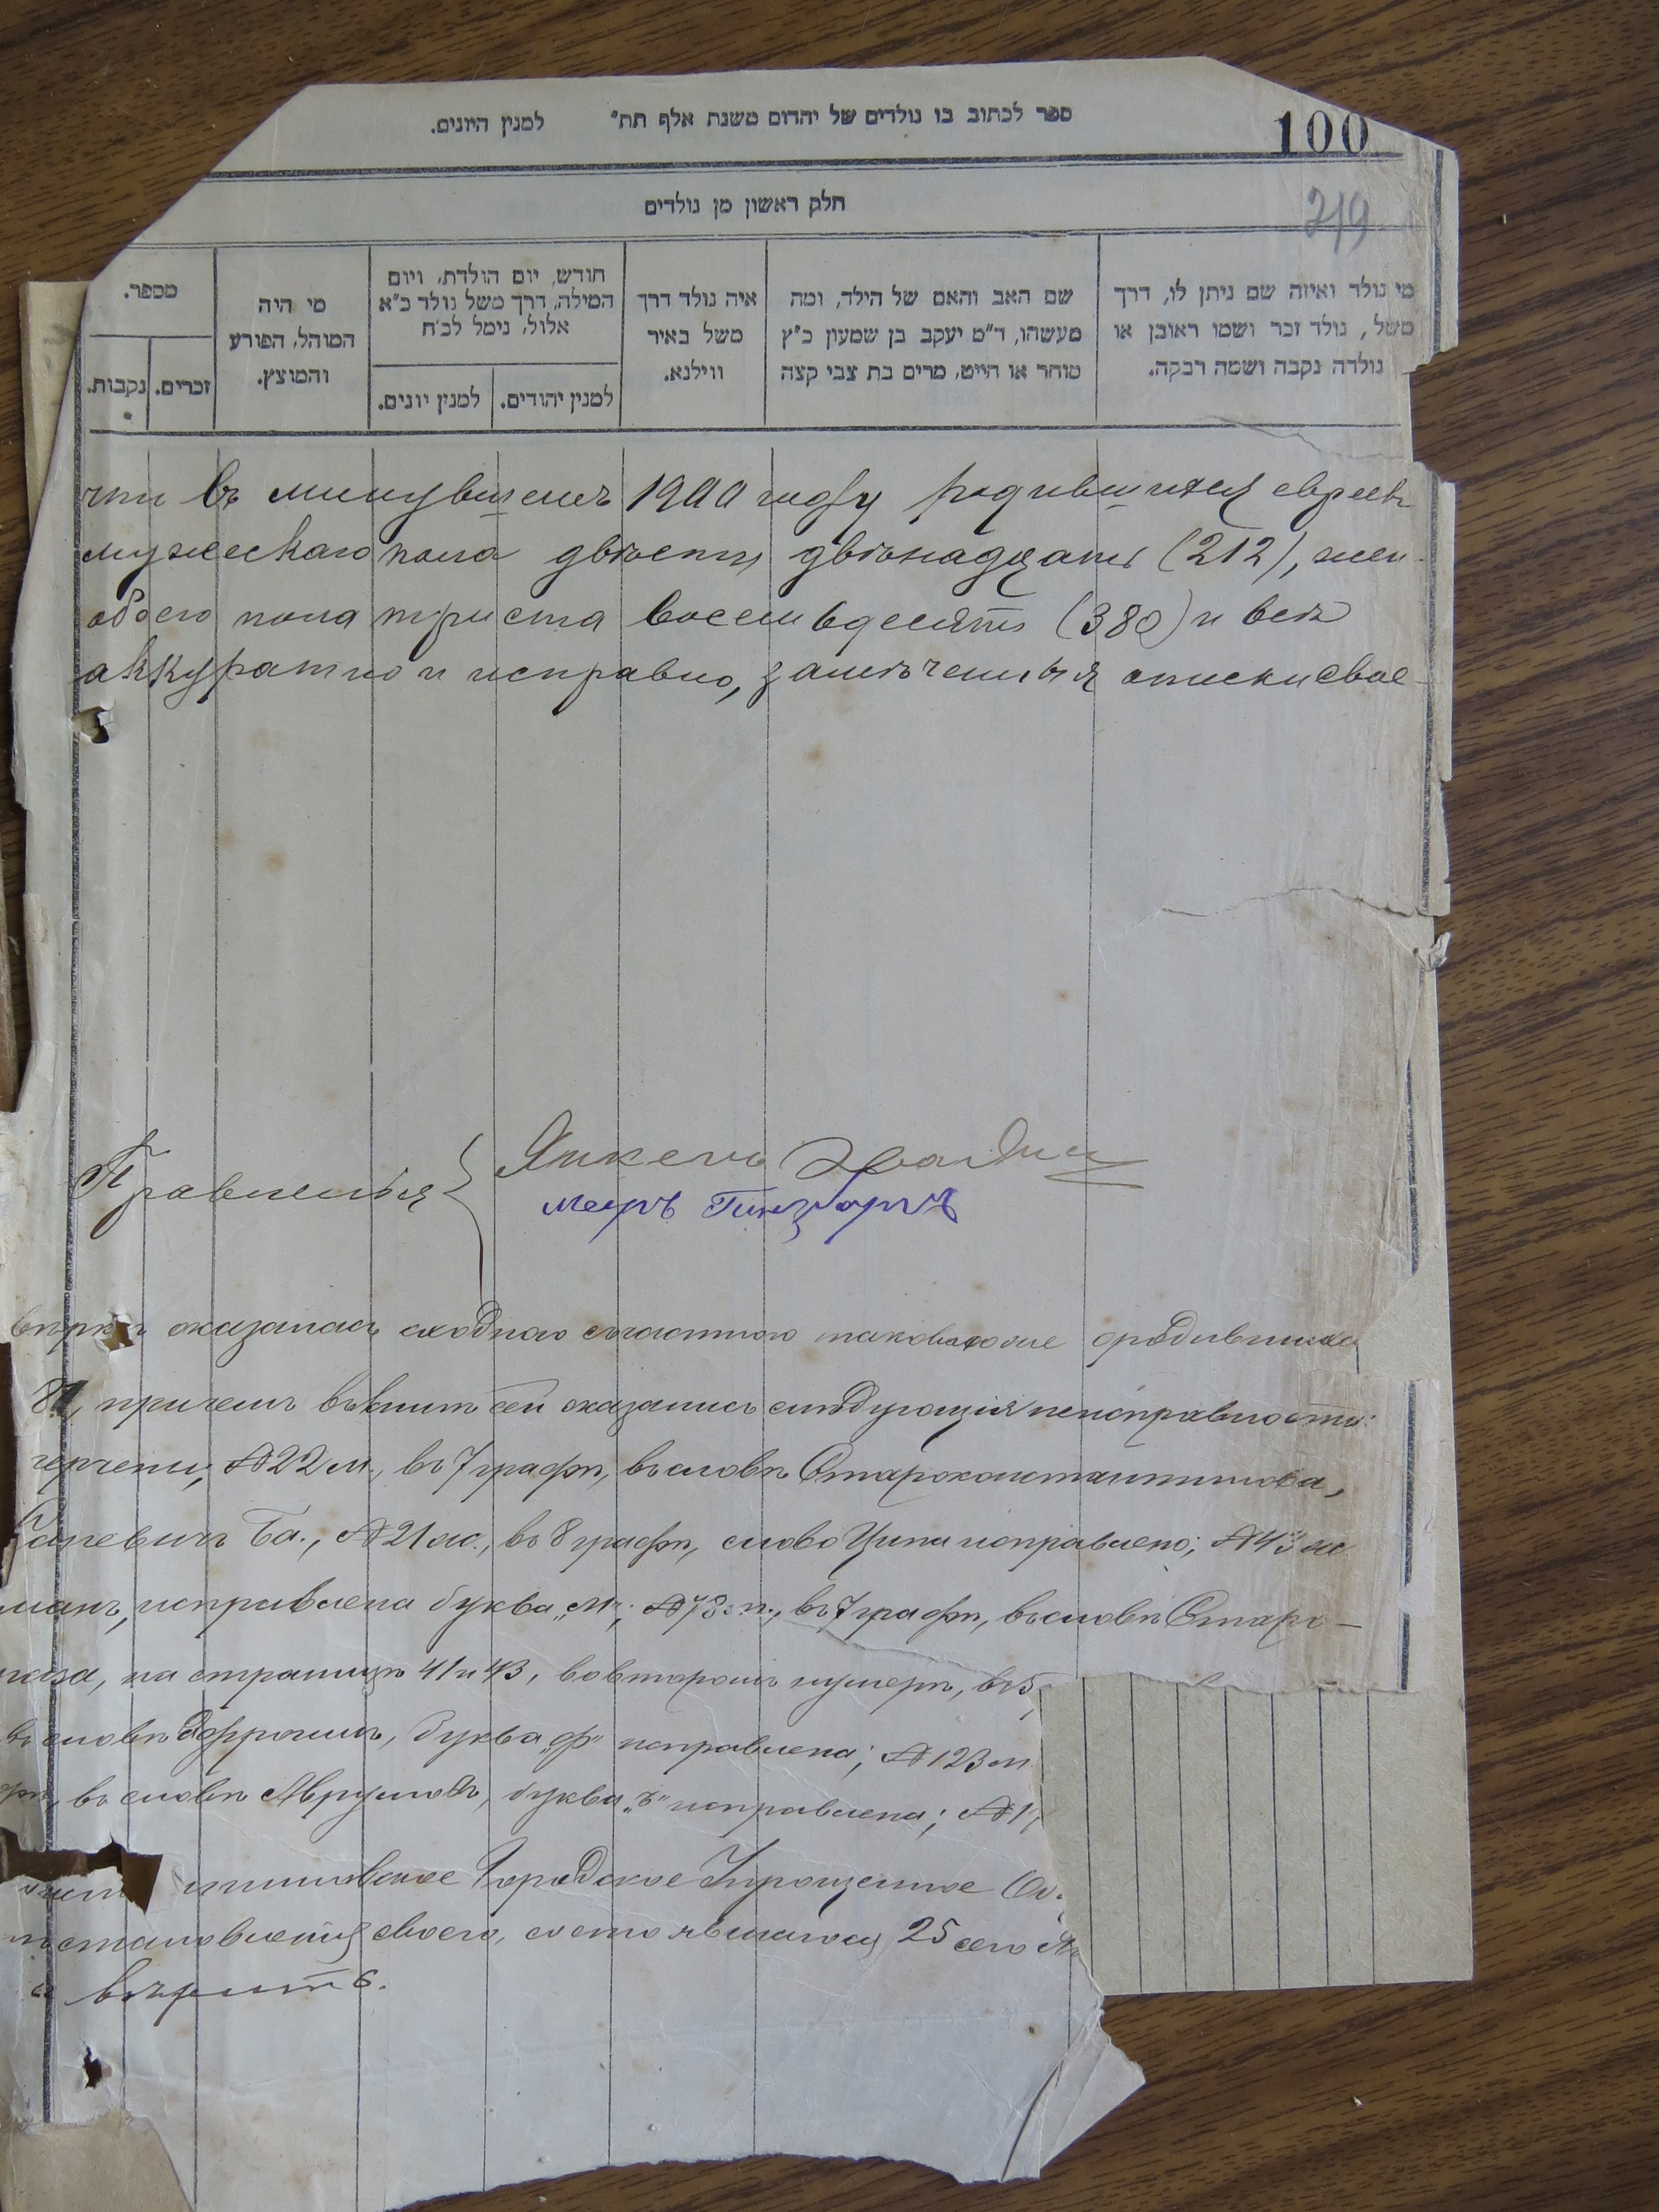 ספר לכתוב בו נולדים של יהדום משנת אלף תת״ למנין היונים.
100
219
חלק ראשון מן נולדים
מי נולד ואיזה שם ניתן לו, דרך
משל, נולד זכר ושמו ראובן או
נולדה נקבה ושמה רבקה.
שם האב והאם של הילד, ומה
מעשהו, ד״מ יעקב בן שמעון כ״ץ
סוחר או חייט, מרים בת צבי קצה
איה נולד דרך
משל באיר
ווילנא.
חודש, יום הולדת, ויום
המילה, דרך משל נולד כ״א
אלול, נימל לכ״ח
למנין יהודים.
למנין יונים.
מי היה
המוהל, הפורע
והמוצץ.
מספר.
זכרים.
נקבות.
что въ минувшемъ 1900 году родившихся евреевъ
мужескаго пола двѣсти двѣнадцать (212), жен-
обоего пола триста восемьдесятъ (380) и всѣ
аккуратно и исправно, замѣченныя описки свое-
Правленія { Янкель
Мееръ Гинзборгъ
оказалась сходною съ такововою же о родившихся
причемъ въ книгѣ сей оказались слѣдующія неисправности:
№ 22 м., въ 7 графѣ, въ словѣ Староконстантинова,
№ 21 ж., въ 8 графѣ, слово Ципа исправлено; № 43 ж
исправлена буква „м"; въ 7 графѣ, въ словѣ Старо-
на страницѣ 41 и 43, во второмъ нумерѣ,
въ словѣ Эфроимъ, буква „ф" исправлена; № 123 м
въ словѣ Аврумовъ, буква „ъ" исправлена; № 1
Городское Упрощенное
постановленія своего, состоявшагося 25 сего
вѣрить.